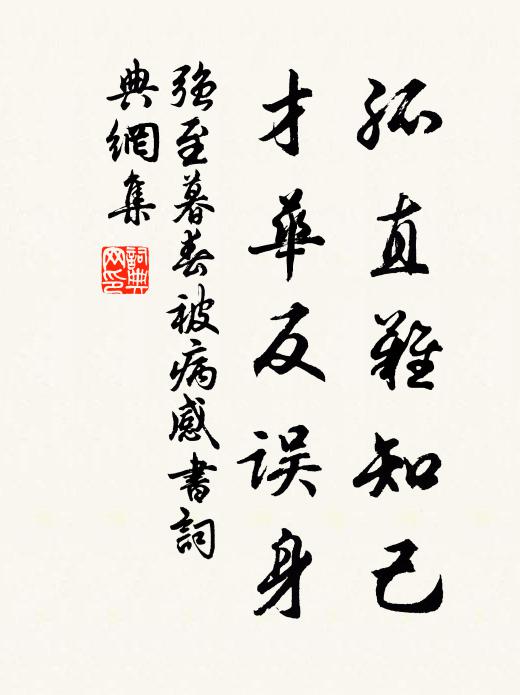 孤直難知己
才華反誤身
強至暮春被病感書詞
典網集
詞典
网印